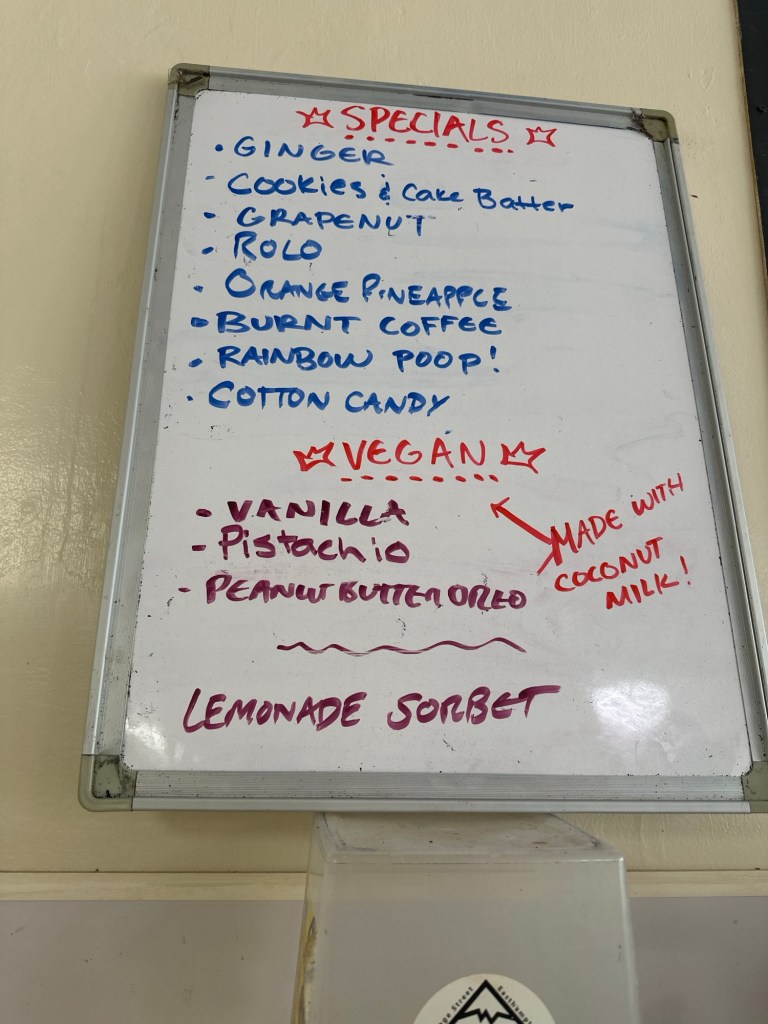 SPECIALS
• GINGER
- Cookies & Cake Batter
• GRAPENUT
• ROLO
• ORANGE PINEAPPLE
• BURNT COFFEE
• RAINBOW POOP!
• COTTON CANDY
VEGAN
- VANILLA
- Pistachio
- PEANUT BUTTER OREO
MADE WITH
COCONUT
MILK!
LEMONADE SORBET
Street